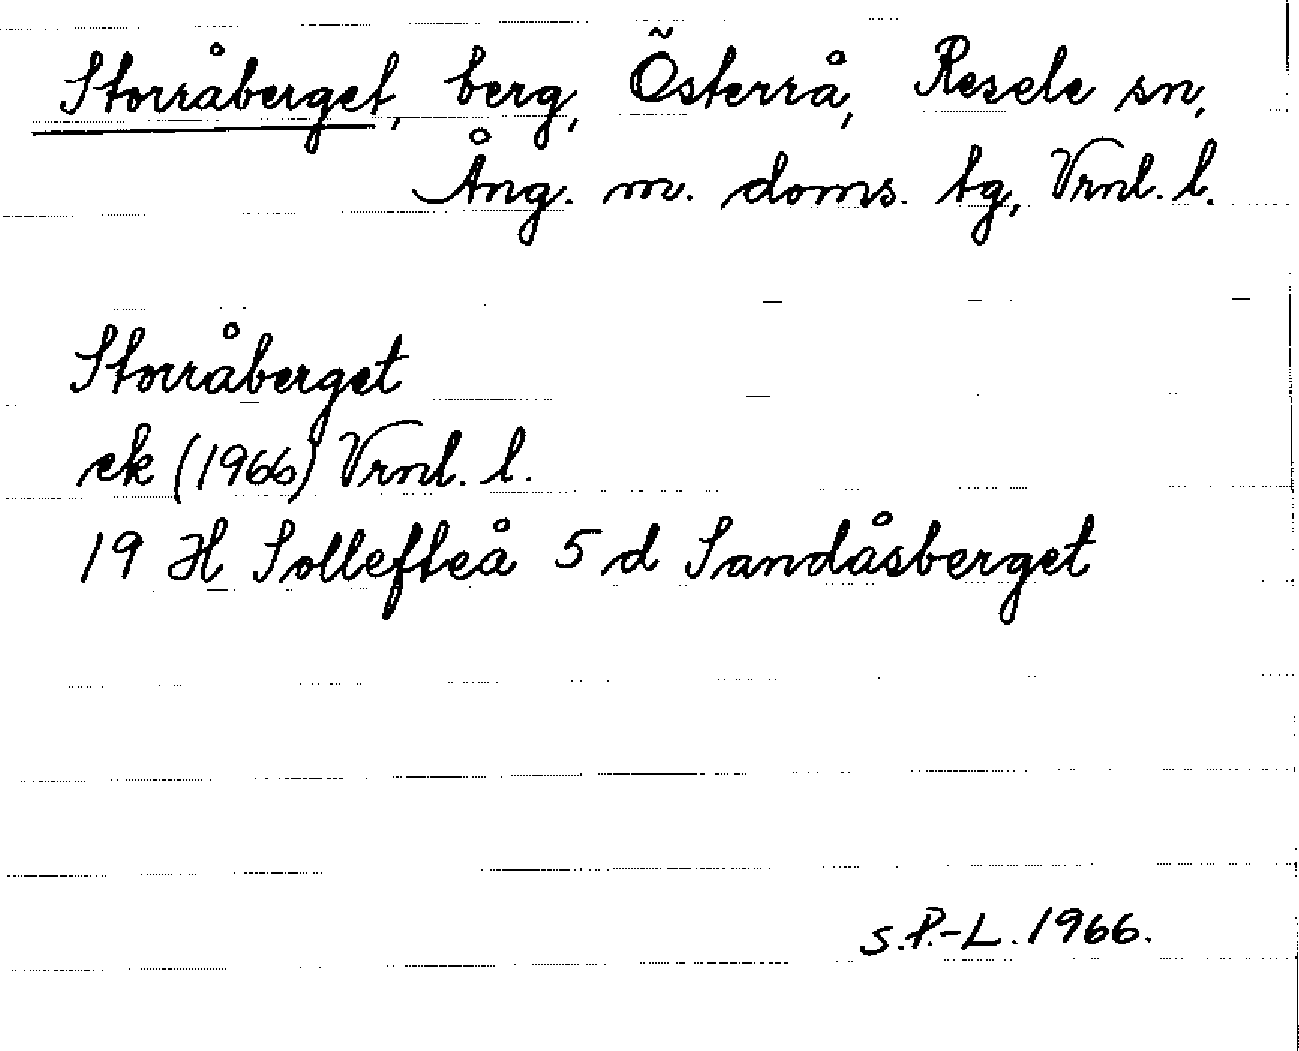 Storråberget, berg, Österrå, Resele sn,
Ång. m. doms. tg, Vrnl. l.
Storråberget
ek (1966) Vrnl. l.
19 H Sollefteå 5 d Sandåsberget
S.P.-L. 1966.